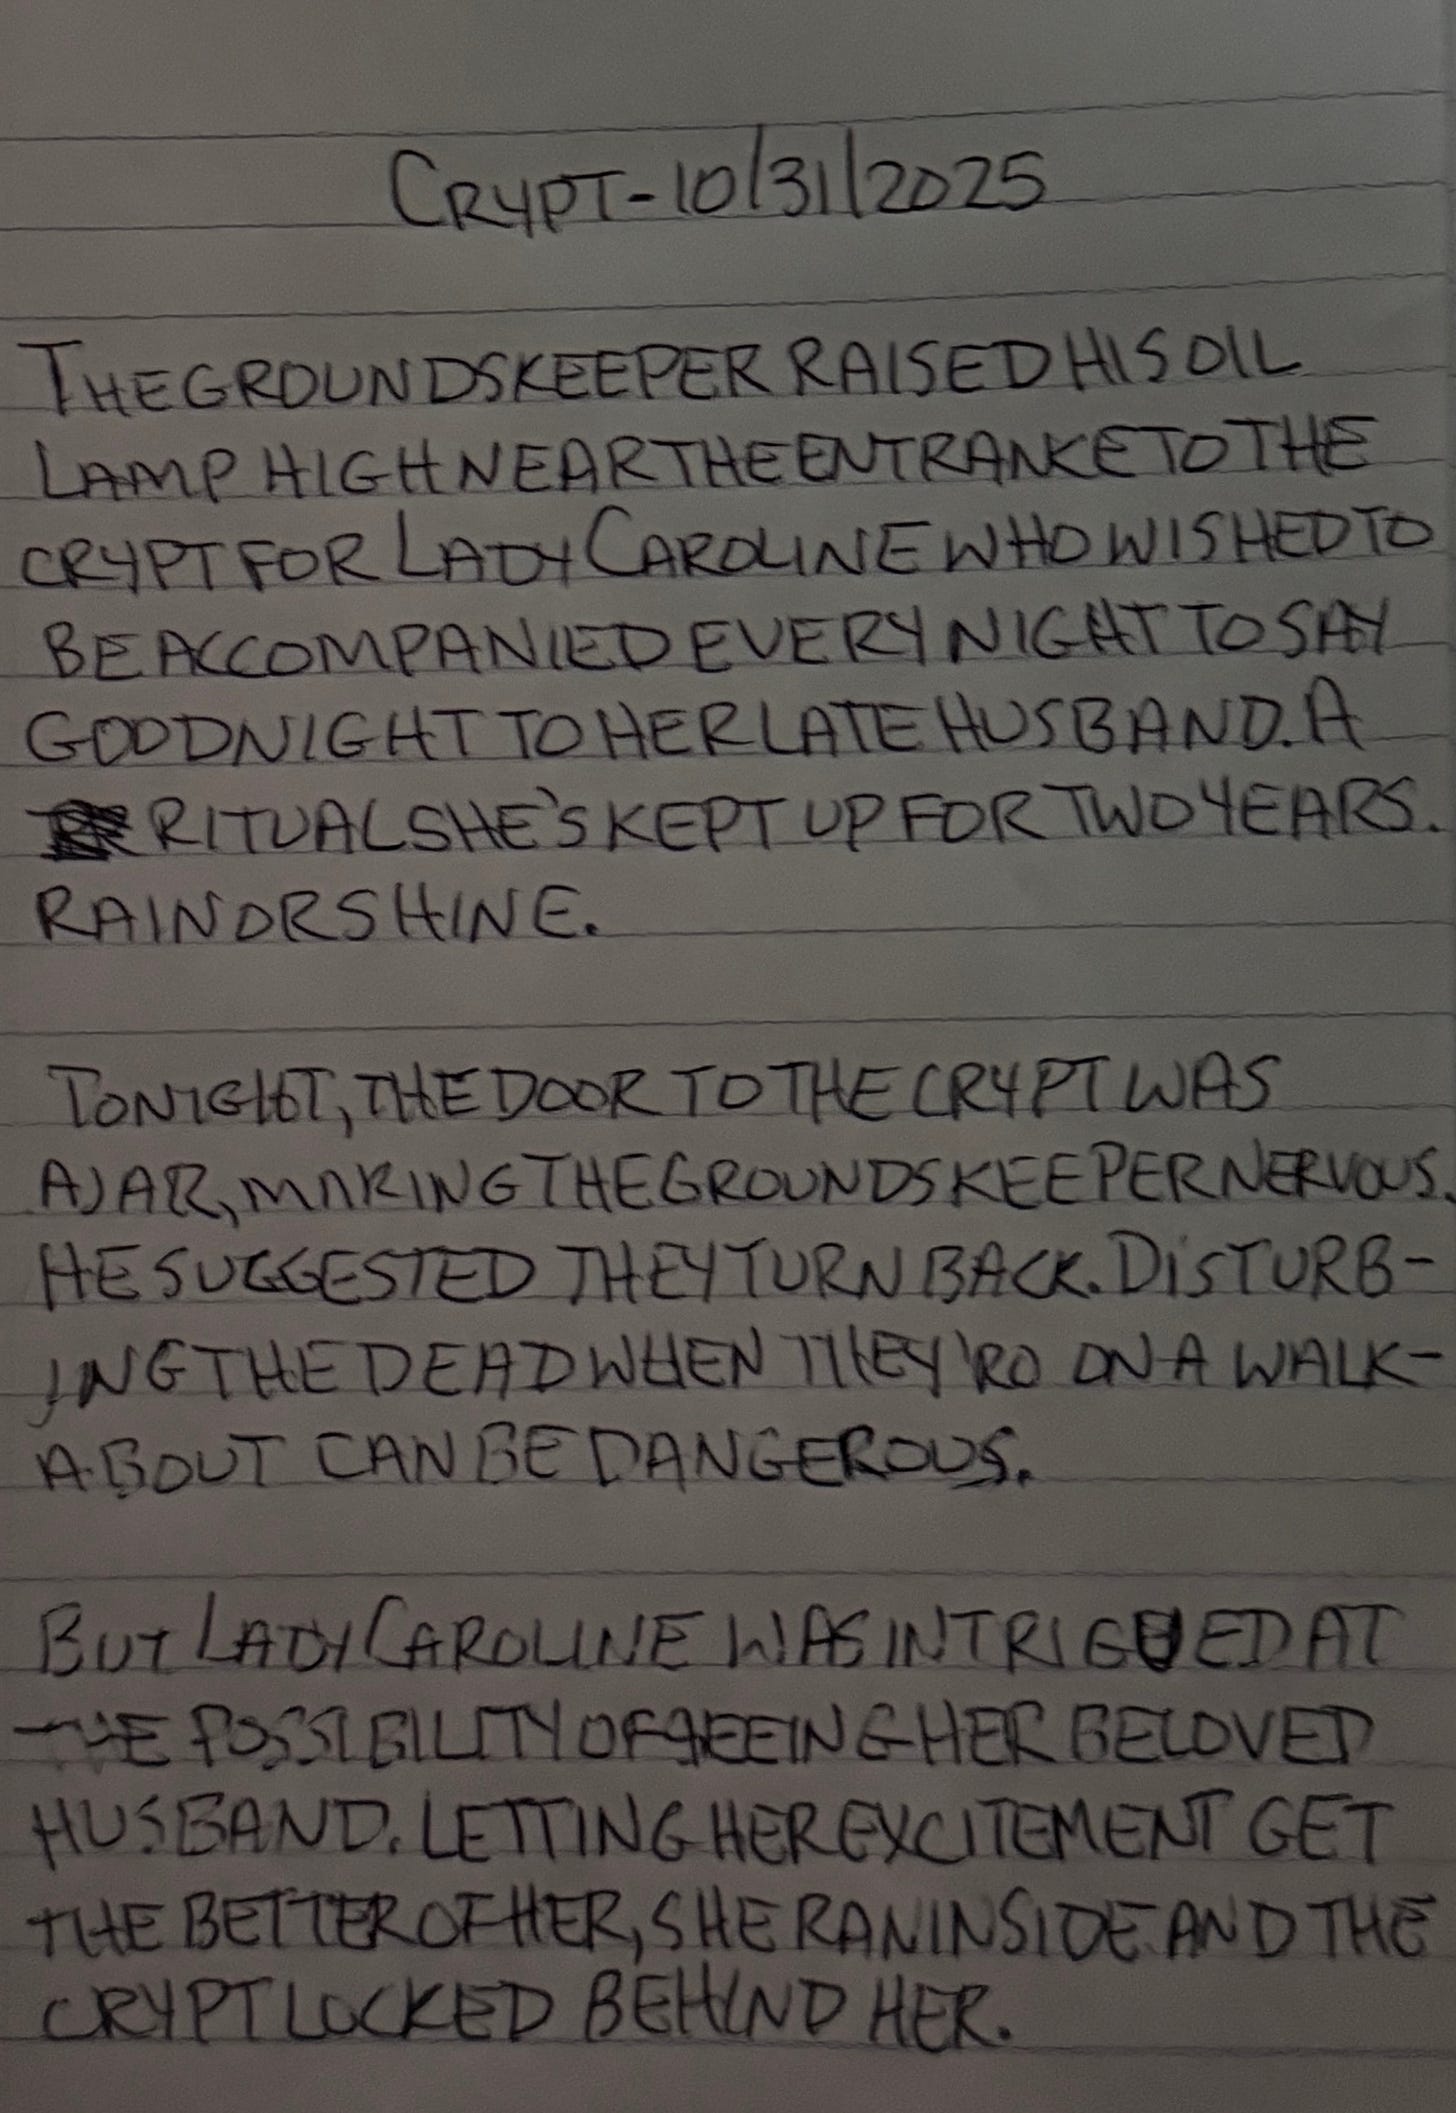 CRYPT-10/31/2025
THE GROUNDSKEEPER RAISED HIS OIL
LAMP HIGH NEAR THE ENTRANCE TO THE
CRYPT FOR LADY CAROLINE WHO WISHED TO
BE ACCOMPANIED EVERY NIGHT TO SAY
GOODNIGHT TO HER LATE HUSBAND. A
RITUAL SHE'S KEPT UP FOR TWO YEARS.
RAIN OR SHINE.
TONIGHT, THE DOOR TO THE CRYPT WAS
AJAR, MAKING THE GROUNDSKEEPER NERVOUS.
HE SUGGESTED THEY TURN BACK. DISTURB-
ING THE DEAD WHEN THEY'RE ON A WALK-
ABOUT CAN BE DANGEROUS.
BUT LADY CAROLINE WAS INTRIGUED AT
THE POSSIBILITY OF SEEING HER BELOVED
HUSBAND. LETTING HER EXCITEMENT GET
THE BETTER OF HER, SHE RAN INSIDE AND THE
CRYPT LOCKED BEHIND HER.